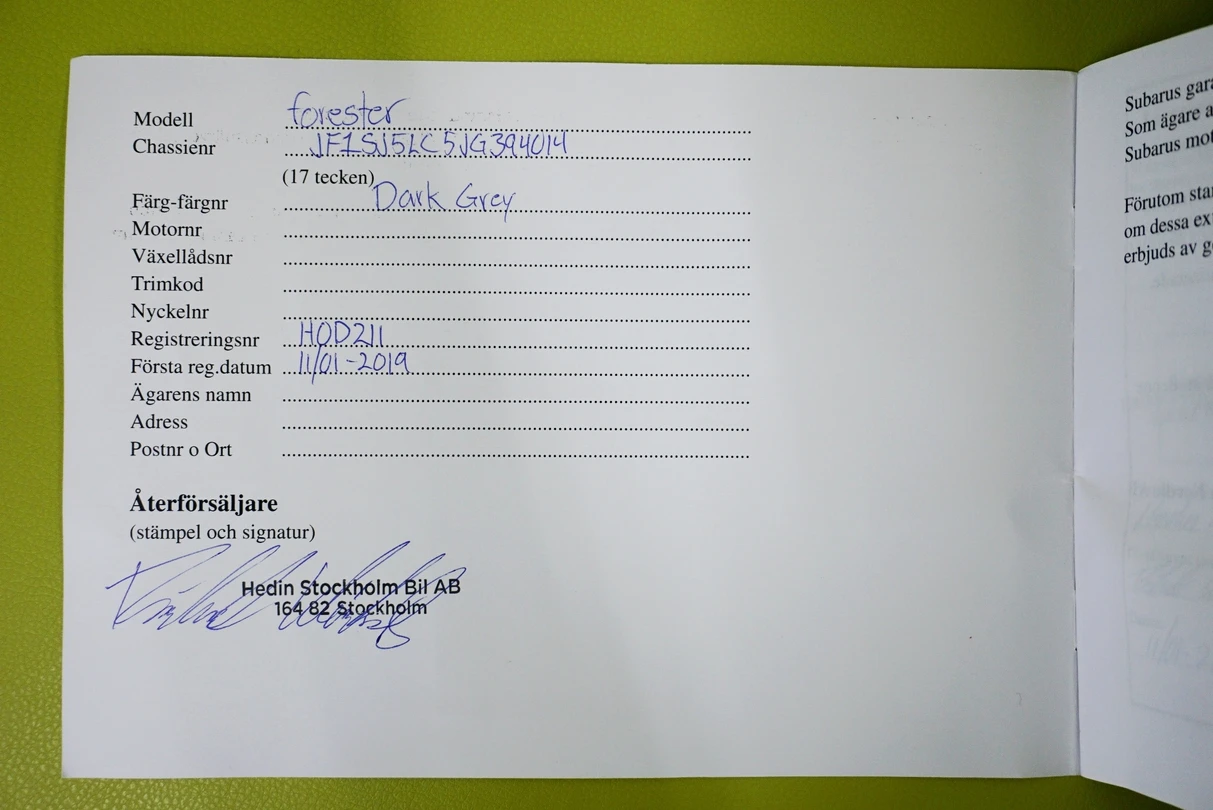 Modell forester
Chassienr JF1SJ5LC5JG394014
(17 tecken)
Färg-färgnr Dark Grey
Motornr
Växellådsnr
Trimkod
Nyckelnr
Registreringsnr HOD211
Första reg.datum 11/01-2019
Ägarens namn
Adress
Postnr o Ort
Återförsäljare
(stämpel och signatur)
Hedin Stockholm Bil AB
164 82 Stockholm
Subarus gara
Som ägare a
Subarus mot
Förutom sta
om dessa ex
erbjuds av g